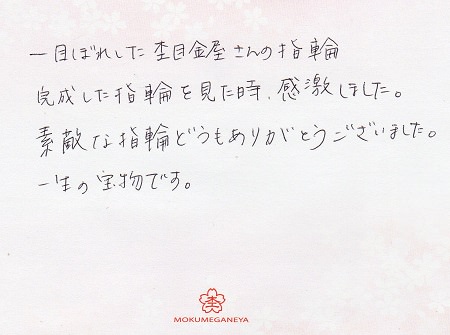 一目ぼれした杢目金屋さんの指輪
完成した指輪を見た時、感激しました。
素敵な指輪どうもありがとうございました。
一生の宝物です。
杢
MOKUMEGANEYA